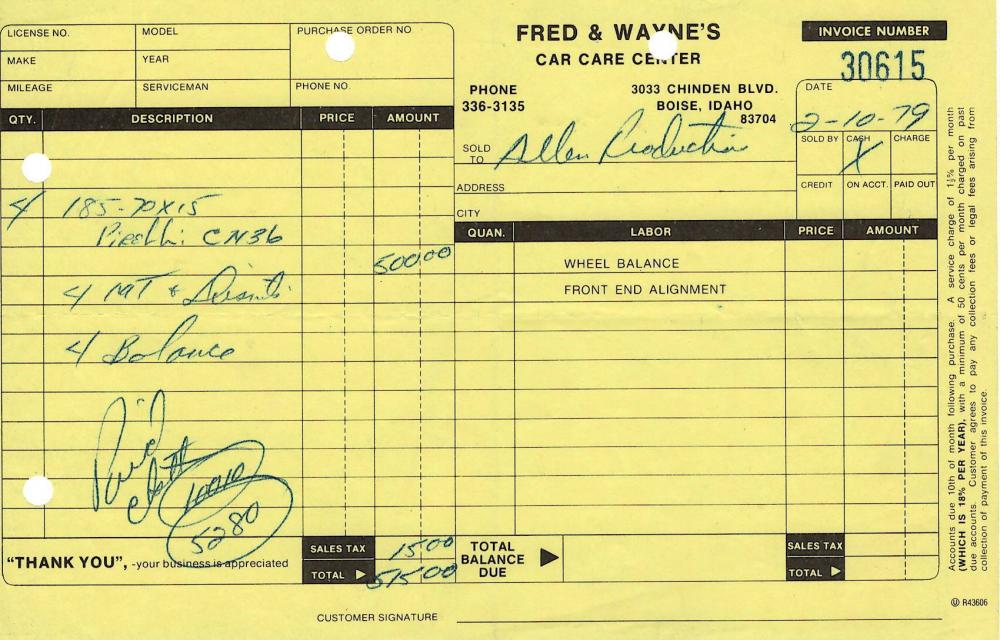 LICENSE NO.
MODEL
PURCHASE ORDER NO
MAKE
YEAR
MILEAGE
SERVICEMAN
PHONE NO.
FRED & WAYNE'S
CAR CARE CENTER
PHONE
336-3135
3033 CHINDEN BLVD.
BOISE, IDAHO
83704
INVOICE NUMBER
30615
DATE
2-10-79
SOLD TO Allen Production
SOLD BY CASH X CHARGE
ADDRESS
CREDIT ON ACCT. PAID OUT
CITY
QTY. DESCRIPTION PRICE AMOUNT
4 185-70X15
Pirelli CN36
500 00
4 MT &
4 Balance
Paid
5280
"THANK YOU", -your business is appreciated
SALES TAX 15 00
TOTAL 515 00
QUAN. LABOR PRICE AMOUNT
WHEEL BALANCE
FRONT END ALIGNMENT
TOTAL
BALANCE
DUE
SALES TAX
TOTAL
CUSTOMER SIGNATURE
Accounts due 10th of month following purchase. A service charge of 1½% per month
(WHICH IS 18% PER YEAR), with a minimum of 50 cents per month charged on past
due accounts. Customer agrees to pay any collection fees or legal fees arising from
collection of payment of this invoice.
R43606